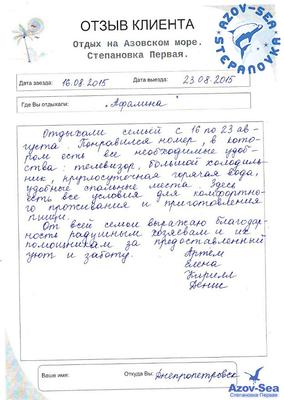 ОТЗЫВ КЛИЕНТА
Отдых на Азовском море.
Степановка Первая.
AZOV-SEA
STEPANOVKA
Дата заезда: 16.08.2015 Дата выезда: 23.08.2015
Где Вы отдыхали: "Афалина"
Отдыхали семьей с 16 по 23 ав-
густа. Понравился номер, в кото-
ром есть все необходимые удоб-
ства: телевизор, большой холодиль-
ник, круглосуточная горячая вода,
удобные спальные места. Здесь
есть все условия для комфортно-
го проживания и приготовления
пищи.
От всей семьи выражаю благодар-
ность радушным хозяевам и их
помощникам за предоставленный
уют и заботу.
Артем
Елена
Кирилл
Денис
Ваше имя: Откуда Вы: Днепропетровск
Azov-Sea
Степановка Первая